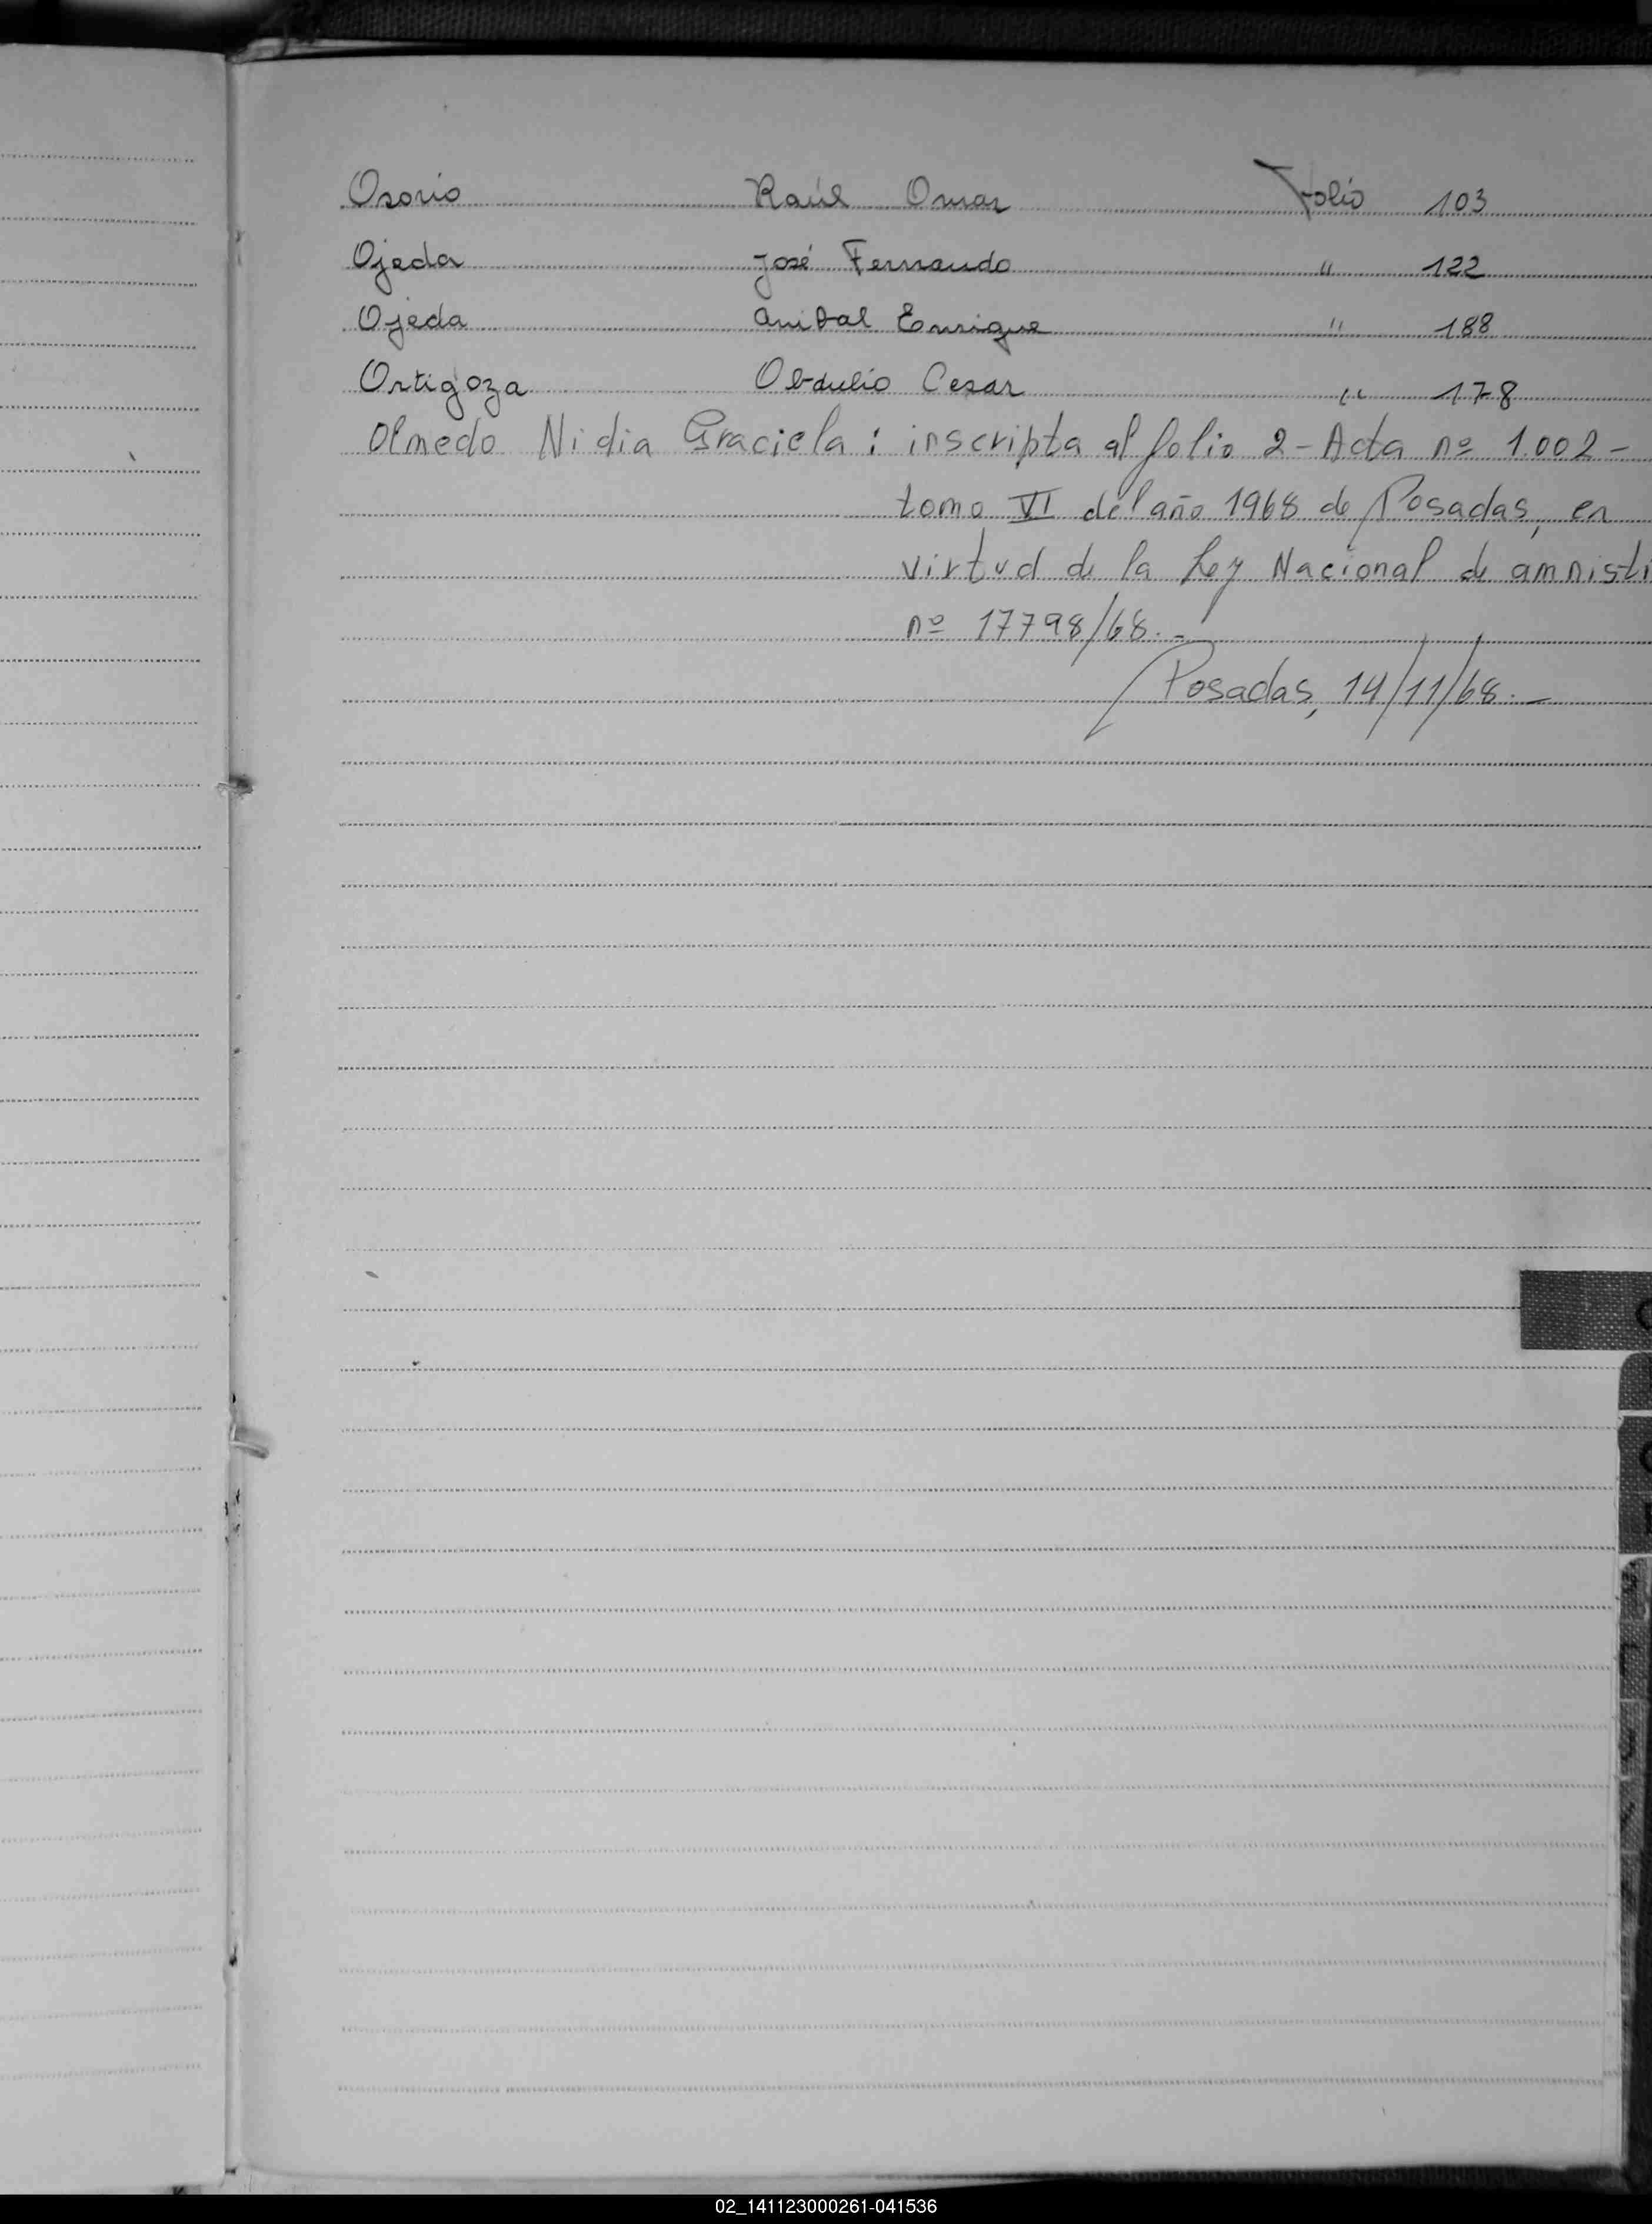 Osorio Raúl Omar Folio 103
Ojeda José Fernando " 122
Ojeda Anibal Enrique " 188
Ortigoza Obdulio Cesar " 178
Olmedo Nidia Graciela: inscripta al folio 2 - Acta nº 1.002 -
tomo VI del año 1968 de Posadas, en
virtud de la Ley Nacional de amnisti
nº 17798/68. -
Posadas, 14/11/68. -
02_141123000261-041536